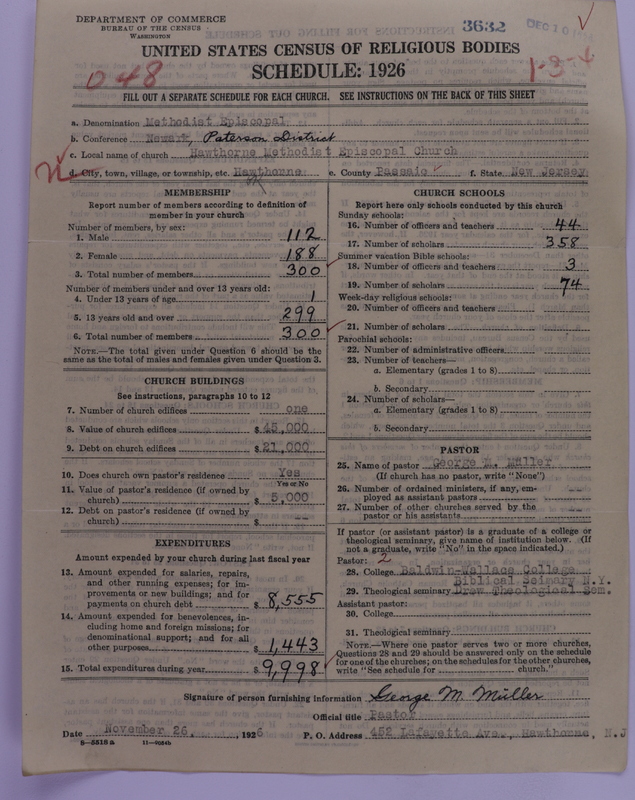 DEPARTMENT OF COMMERCE
BUREAU OF THE CENSUS
WASHINGTON
3632
DEC 10
UNITED STATES CENSUS OF RELIGIOUS BODIES
SCHEDULE: 1926
048
1-3-4
FILL OUT A SEPARATE SCHEDULE FOR EACH CHURCH. SEE INSTRUCTIONS ON THE BACK OF THIS SHEET
a. Denomination Methodist Episcopal
b. Conference Newark, Paterson District
c. Local name of church Hawthorne Methodist Episcopal Church
d. City, town, village, or township, etc. Hawthorne e. County Passaic f. State New Jersey
MEMBERSHIP
Report number of members according to definition of
member in your church
Number of members, by sex:
1. Male 112
2. Female 188
3. Total number of members 300
Number of members under and over 13 years old:
4. Under 13 years of age 1
5. 13 years old and over 299
6. Total number of members 300
NOTE.—The total given under Question 6 should be
same as the total of males and females given under Question 3.
CHURCH BUILDINGS
See instructions, paragraphs 10 to 12
7. Number of church edifices one
8. Value of church edifices $ 45,000
9. Debt on church edifices $ 21,000
10. Does church own pastor's residence Yes
Yes or No
11. Value of pastor's residence (if owned by
church) $ 5,000
12. Debt on pastor's residence (if owned by
church) $ --
EXPENDITURES
Amount expended by your church during last fiscal year
13. Amount expended for salaries, repairs,
and other running expenses; for im-
provements or new buildings; and for
payments on church debt $ 8,555
14. Amount expended for benevolences, in-
cluding home and foreign missions; for
denominational support; and for all
other purposes $ 1,443
15. Total expenditures during year $ 9,998
CHURCH SCHOOLS
Report here only schools conducted by this church
Sunday schools:
16. Number of officers and teachers 44
17. Number of scholars 358
Summer vacation Bible schools:
18. Number of officers and teachers 3
19. Number of scholars 74
Week-day religious schools:
20. Number of officers and teachers
21. Number of scholars
Parochial schools:
22. Number of administrative officers
23. Number of teachers—
a. Elementary (grades 1 to 8)
b. Secondary
24. Number of scholars—
a. Elementary (grades 1 to 8)
b. Secondary
PASTOR
25. Name of pastor George M. Müller
(If church has no pastor, write "None")
26. Number of ordained ministers, if any, em-
ployed as assistant pastors --
27. Number of other churches served by the
pastor or his assistants --
If pastor (or assistant pastor) is a graduate of a college or
theological seminary, give name of institution below. (If
not a graduate, write "No" in the space indicated.)
Pastor: 2
28. College Baldwin-Wallace College
Biblical Seimary N.Y.
29. Theological seminary Drew Theological Sem.
Assistant pastor:
30. College
31. Theological seminary
NOTE.—Where one pastor serves two or more churches,
Questions 28 and 29 should be answered only on the schedule
for one of the churches; on the schedules for the other churches,
write "See schedule for church."
Signature of person furnishing information George M. Müller
Official title Pastor
Date November 26, 1926 P. O. Address 452 Lafayette Ave., Hawthorne, N.J
8-5518a 11-9064b